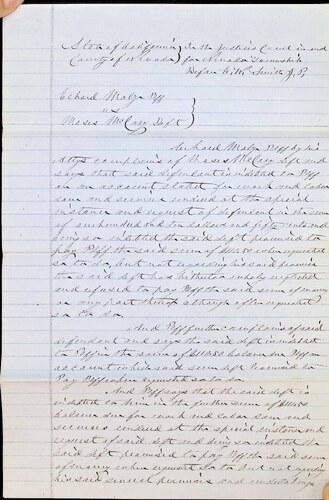 State of California } In the Justices Court in and
County of Nevada } for Nevada Township
Before Smith J. P.
Echard Malze Pff
vs
Moses McCoy Deft
Echard Malze Pltff by his
Attys complains of Moses McCoy deft and
says that said defendant is indebted to Pff
on an account stated for work and labor
done and services rendered at the special
instance and request of defendant in the sum
of one hundred and ten dollars and fifty cents and
being so indebted the said deft promised to
pay Pff the said sum of $110.50 when requested
so to do, but not regarding his said promise
the said deft has hitherto wholy neglected
and refused to pay Pff the said sum of money
or any part thereof although often requested
so to do.
And Pff further complains of said
defendant and says the said deft is indebted
to Pff in the sum of $110.50 balance due Pff on
account which said sum deft promised to
Pay Pff when requested so to do
And Pff says that the said deft is
indebted to him in the further sum of $110.50
balance due for work and labor done and
services rendered at the special instance and
request of said deft and being so indebted the
said deft promised to pay Pff the said sum
of money when requested so to do but not regarding
his said several promises and undertakings